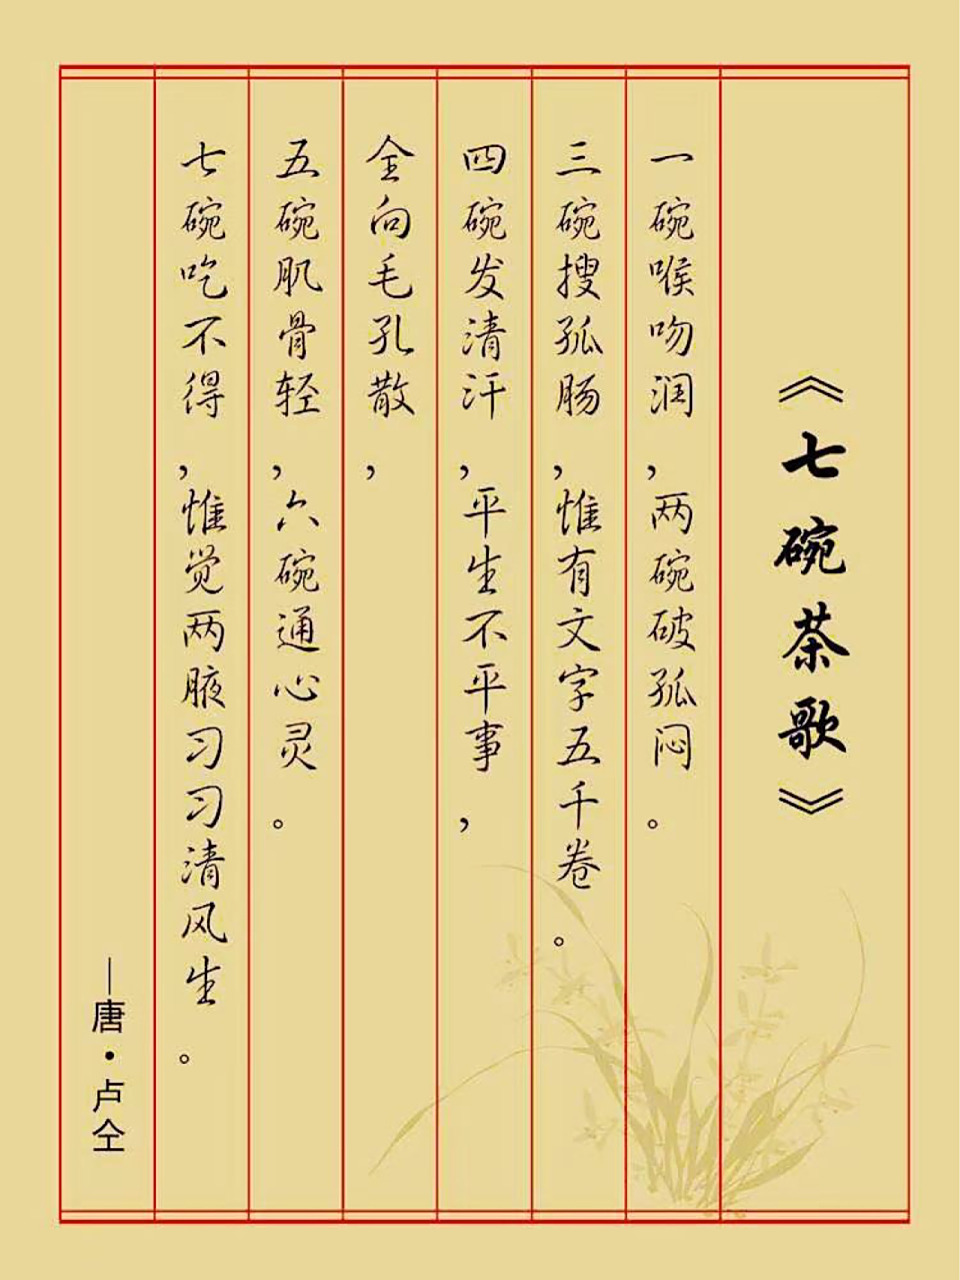 《七碗茶歌》
一碗喉吻润,两碗破孤闷。
三碗搜孤肠,惟有文字五千卷。
四碗发清汗,平生不平事,
全向毛孔散,
五碗肌骨轻,六碗通心灵。
七碗吃不得,惟觉两腋习习清风生。
—唐·卢仝